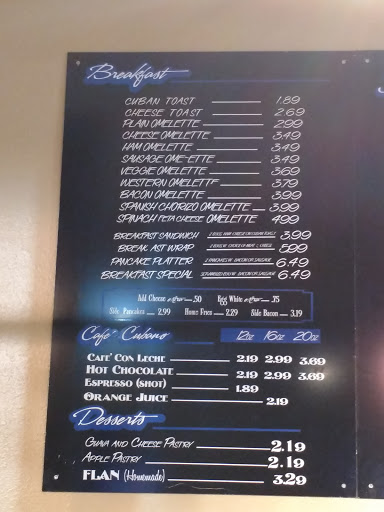 Breakfast
CUBAN TOAST 1.89
CHEESE TOAST 2.69
PLAIN OMELETTE 2.99
CHEESE OMELETTE 3.49
HAM OMELETTE 3.49
SAUSAGE OME-ETTE 3.49
VEGGIE OMELETTE 3.69
WESTERN OMELETTE 3.79
BACON OMELETTE 3.99
SPANISH CHORIZO OMELETTE 3.99
SPINACH FETA CHEESE OMELETTE 4.99
BREAKFAST SANDWICH 3.99
BREAK AST WRAP 5.99
PANCAKE PLATTER 6.49
BREAKFAST SPECIAL 6.49
Add Cheese .50 Egg White .75
Side Pancakes 2.99 Home Fries 2.29 Side Bacon 3.19
Café Cubano 12oz 16oz 20oz
CAFE' CON LECHE 2.19 2.99 3.69
HOT CHOCOLATE 2.19 2.99 3.69
ESPRESSO (SHOT) 1.89
ORANGE JUICE 2.19
Desserts
GUAVA AND CHEESE PASTRY 2.19
APPLE PASTRY 2.19
FLAN (Homemade) 3.29